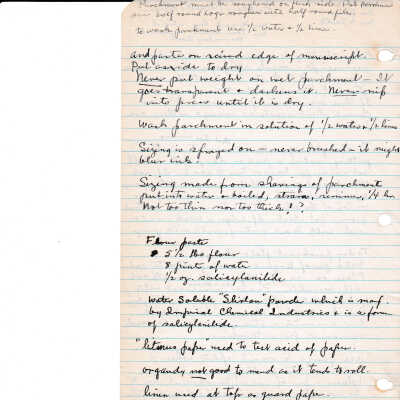 Parchment must be roughened on flesh side. Put
use half round edge rougher with half round file.
to wash parchment use ½ water & ½ lime.
and paste on reined edge of manuscript.
Put aside to dry
Never put weight on wet parchment – It
goes transparent & darkens it. Never nip
into press until it is dry.
Wash parchment in solution of ½ water & ½ lime
Sizing is sprayed on – never brushed – it might
blur ink.
Sizing made from shavings of parchment
put into water & boiled, strain, simmer, ¼ hr
Not too thin nor too thick!?
Flour paste
5 ½ lbs flour
8 pints of water
½ oz. salicylanilide
Water Soluble "Shirlan" powder which is manf.
by Imperial Chemical Industries & is a form
of salicylanilide.
"litmus paper" used to test acid of paper.
organdy not good to mend as it tends to roll.
linen used at top as guard paper.